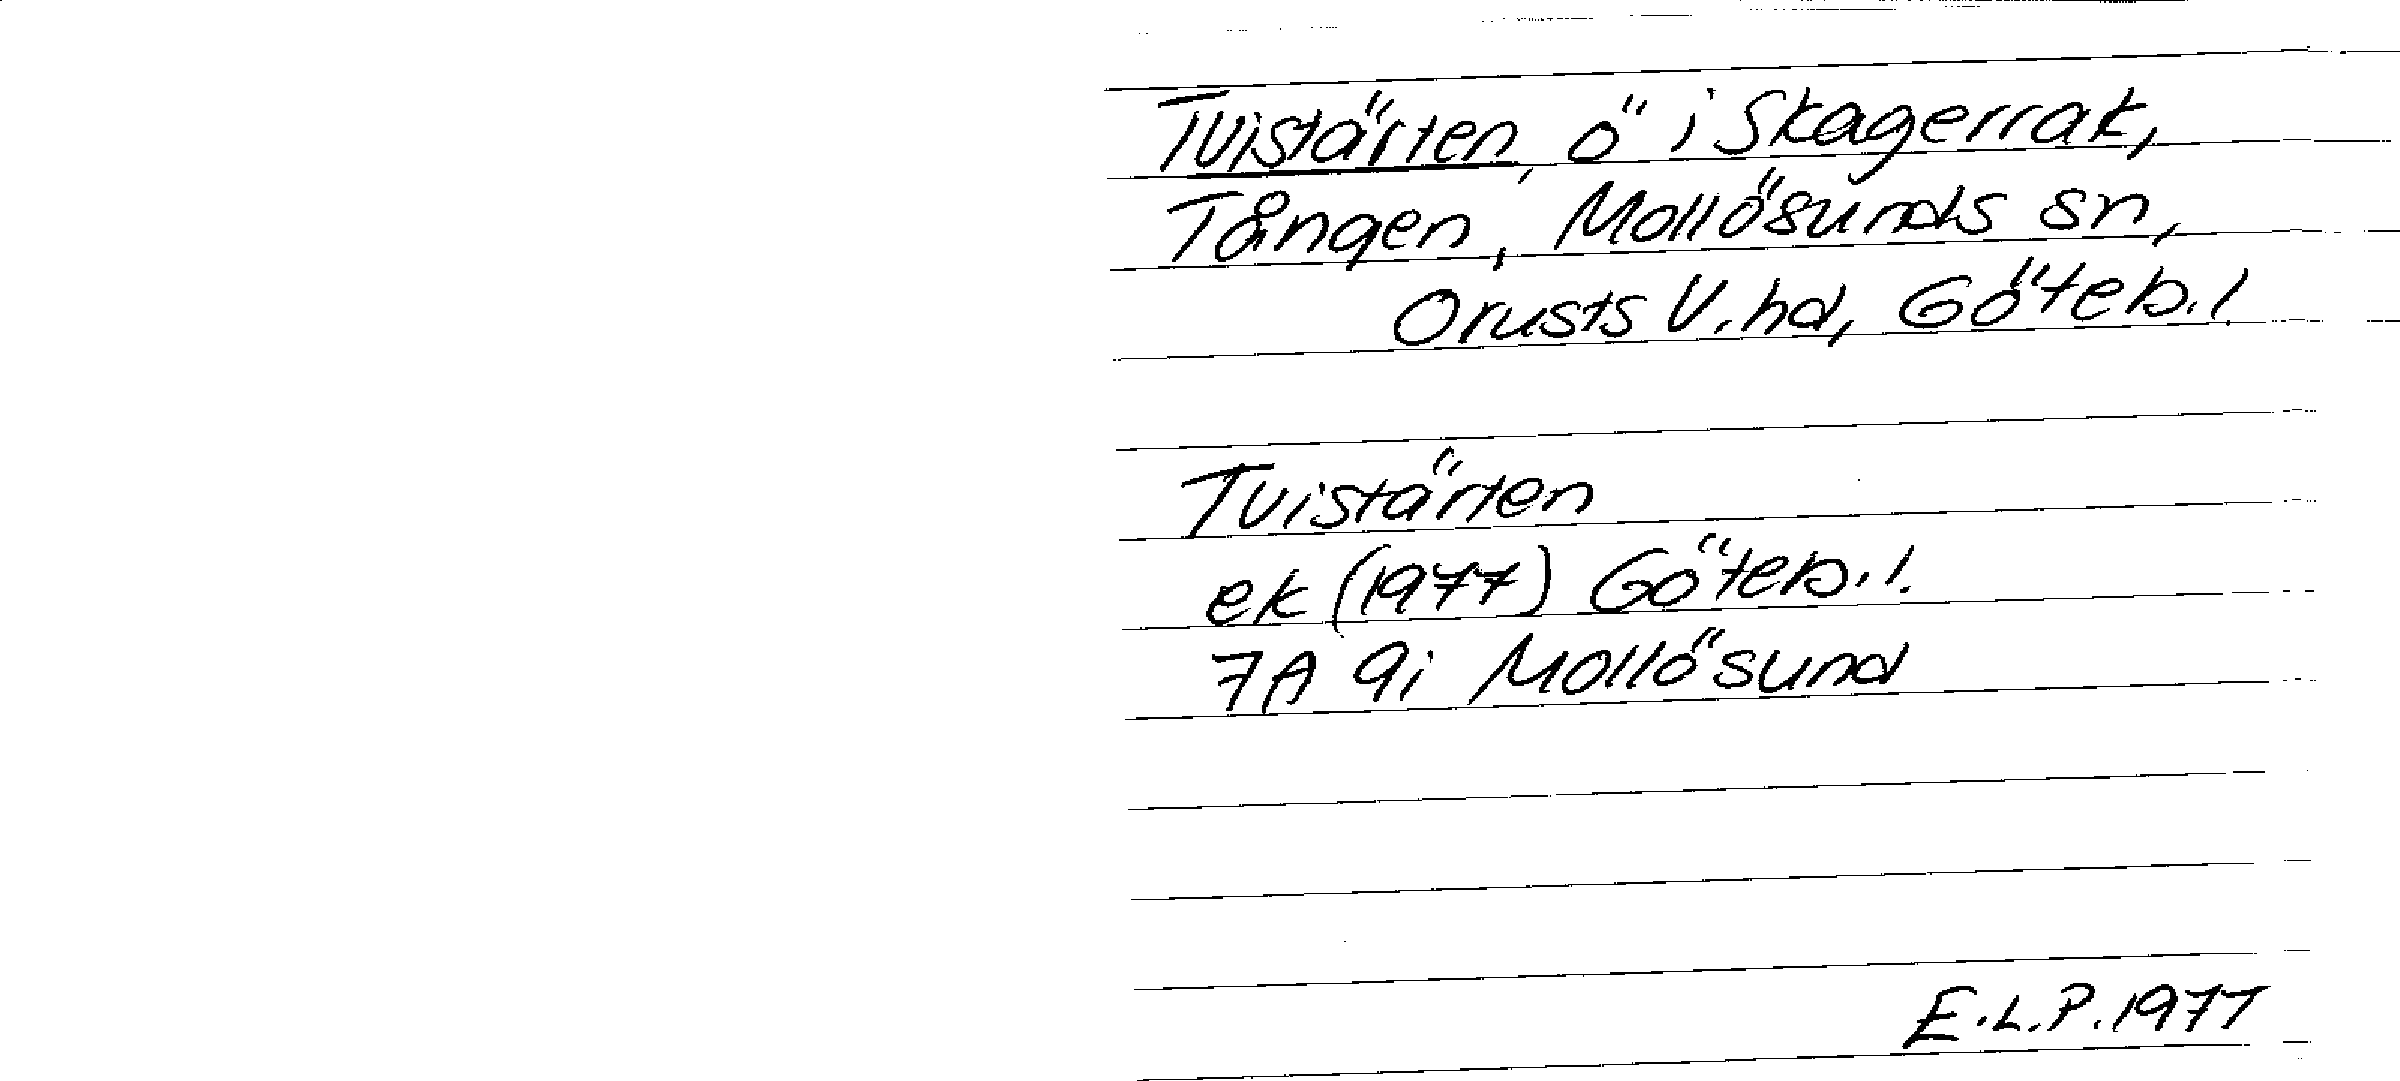 Tvistärten, ö i Skagerrak,
Tången, Mollösunds sn,
Orusts V. hd, Göteb. l.
Tvistärten
ek (1977) Göteb. l.
7A 9i Mollösund
E.L.P. 1977